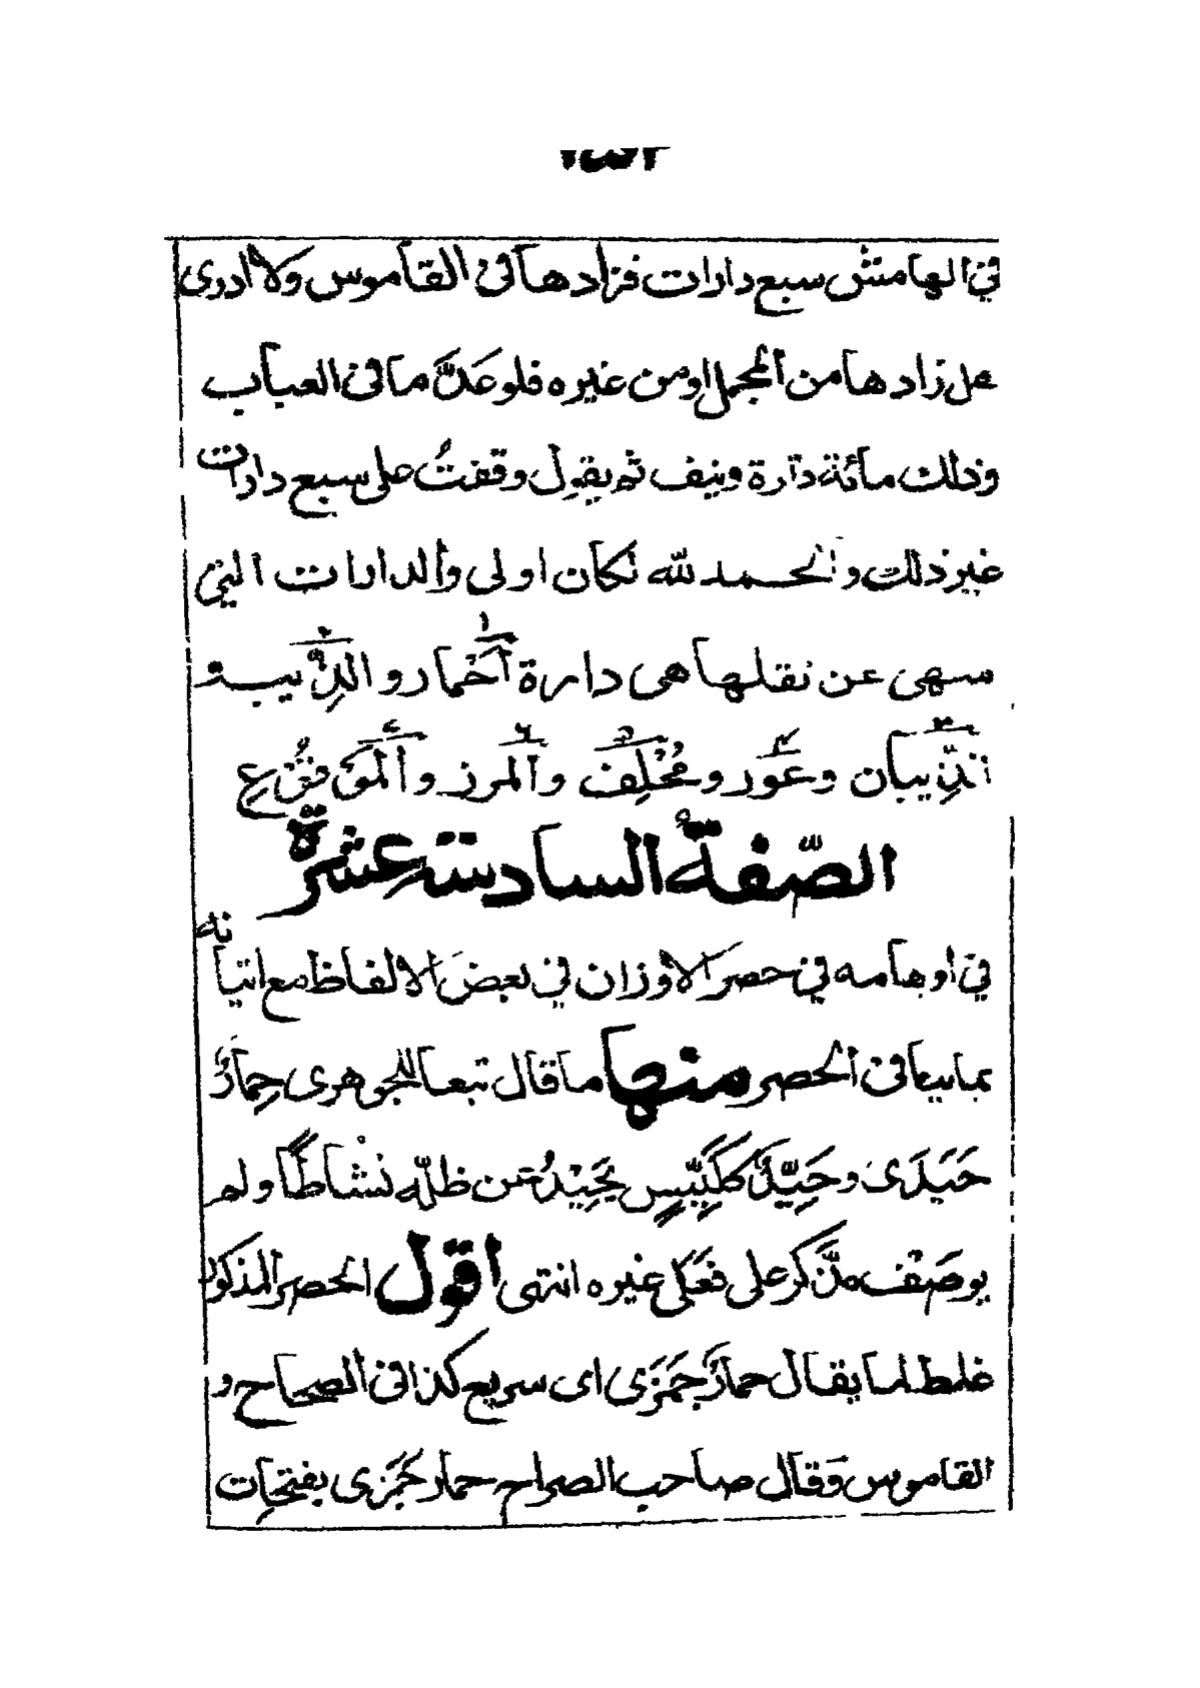 في الهامش سبع دارات فزادها في القاموس ولا ادرى
هل زادها من المجمل او من غيره فلو عَدَّ ما فى العباب
وذلك مائة دارة ونيف ثم يقول وقفتُ على سبع دارات
غير ذلك والحمد لله لكان اولى والدارات التي
سهى عن نقلها هى دارة أَخْمار و الذِّيبة
الذِّيبان وعَوَر ومُخْلِف والمرز والمَوْقُوع
الصّفةُ السادسة عشرة
في اوهامه في حصر الاوزان في بعض الالفاظ مع اتيانه
بما ينافى الحصر منها ما قال تبعا للجوهرى حِمارٌ
حَيَدَى وحَيِّدٌ ككَيِّسٍ يَحِيْدُ عن ظلّه نشاطًا ولم
يوصَف مذَّكر على فَعَلَى غيره انتهى اقول الحصر المذكور
غلط لما يقال حمارٌ جَمَزَى اى سريع كذا فى الصحاح و
القاموس وَقال صاحب الصراح حمار جَمَزى بفتحات